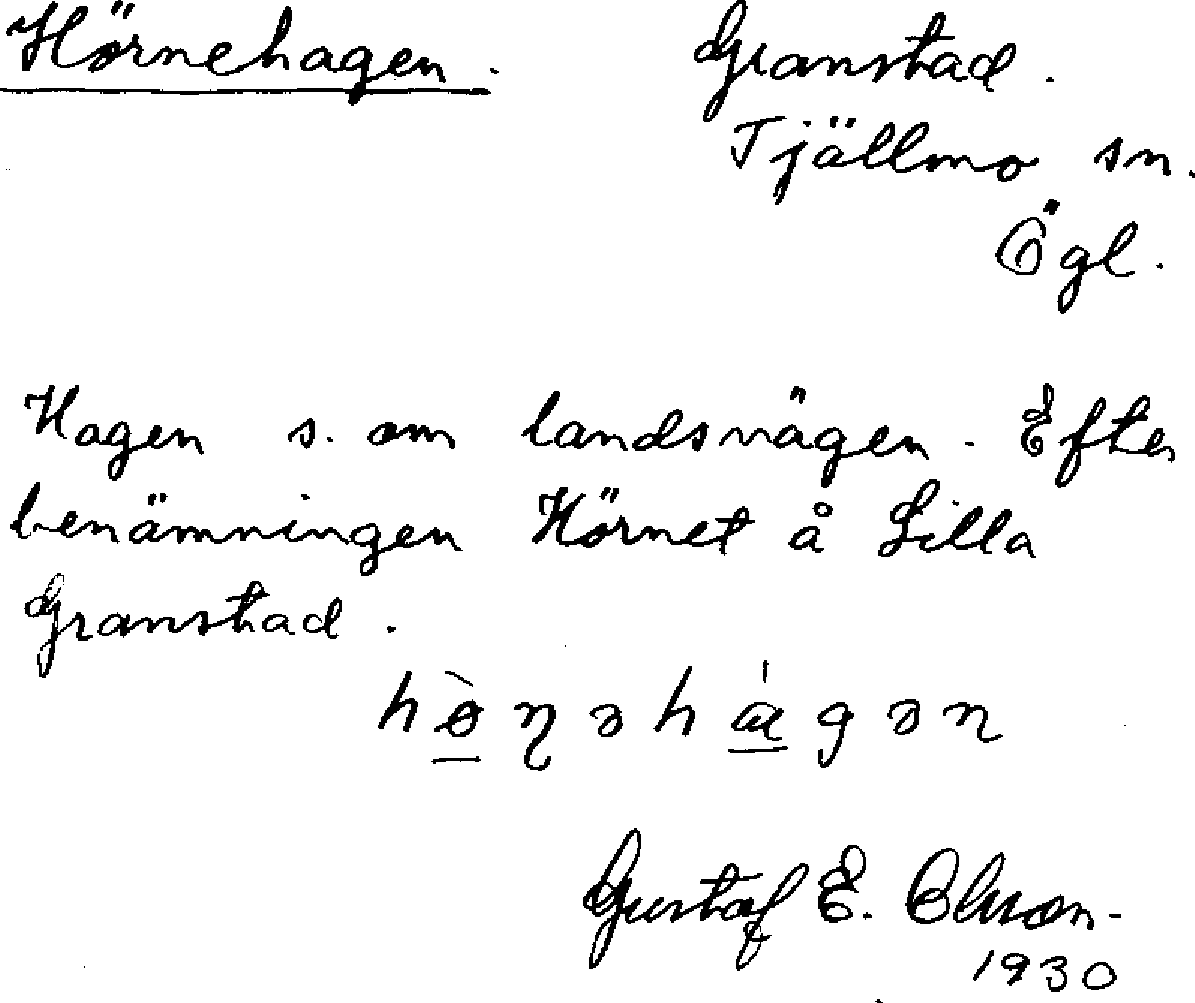 Hörnehagen.
Granstad.
Tjällmo sn.
Ögl.
Hagen s. om landsvägen. Efter
benämningen Hörnet å Lilla
Granstad.
hø̀ṇəhágən
Gustaf E. Olsson.
1930